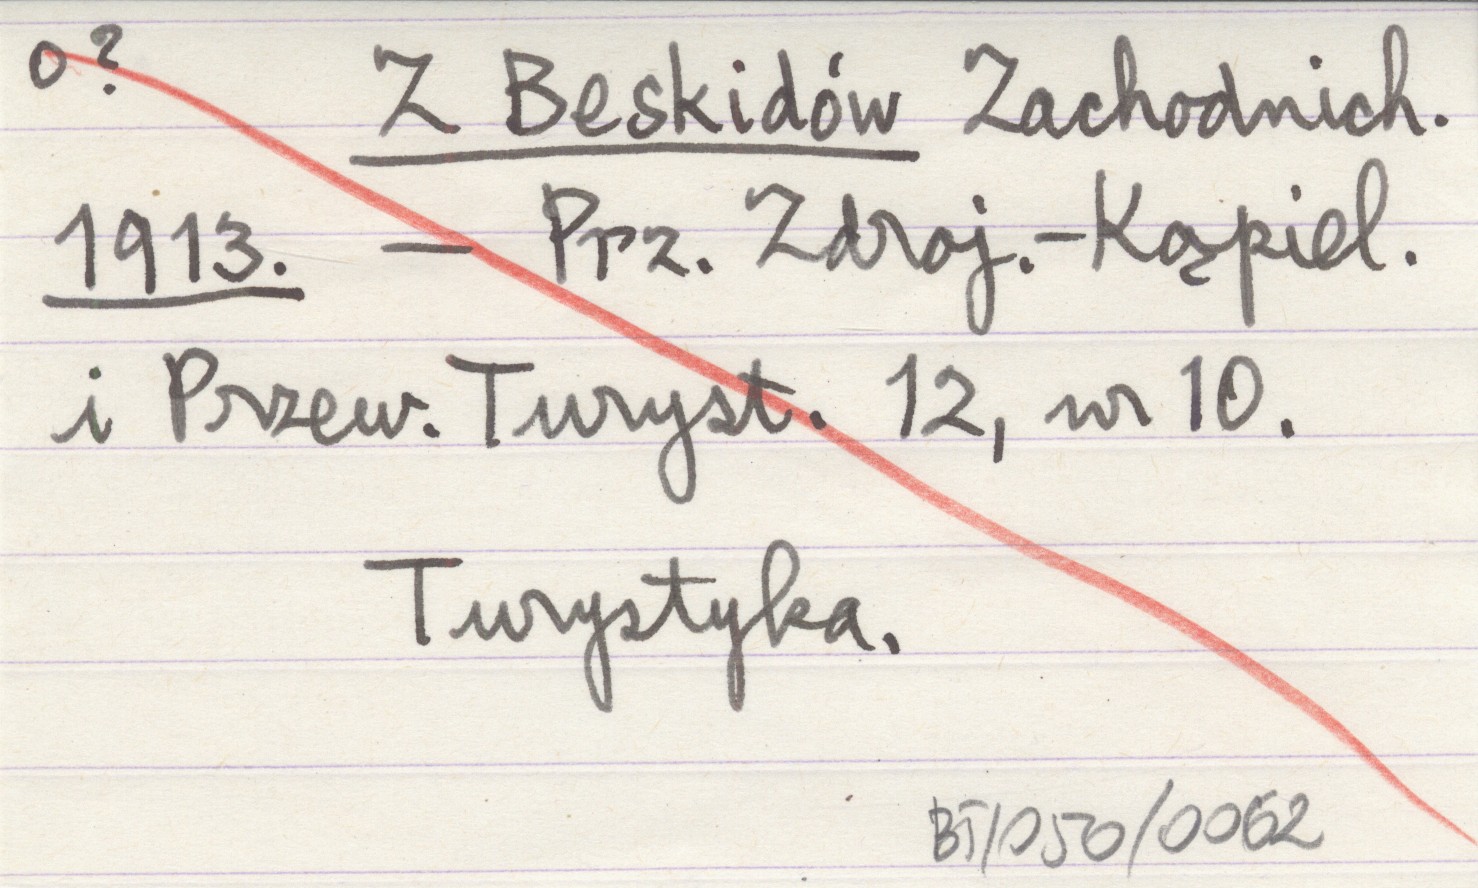 o? Z Beskidów Zachodnich.
1913. — Prz. Zdroj.-Kąpiel.
i Przew. Turyst. 12, nr 10.
Turystyka.
BT/050/0062